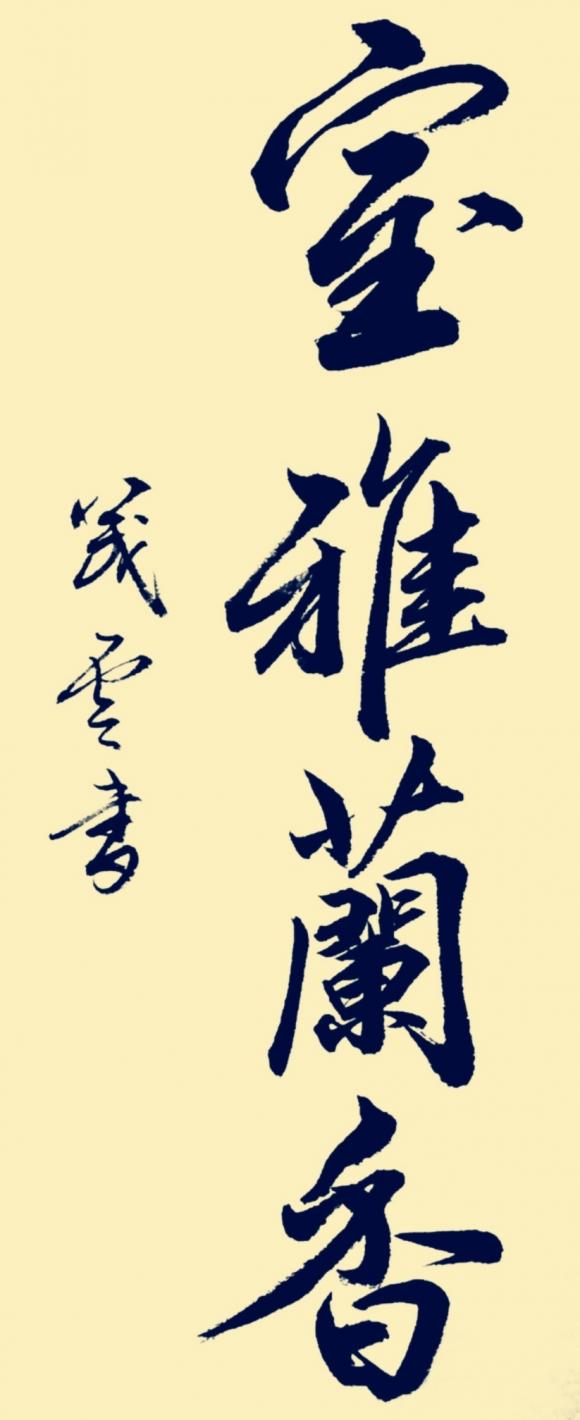 室雅蘭香
茂雲書